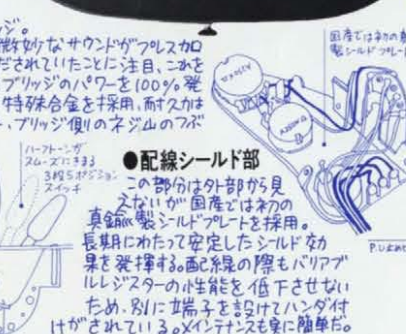 ッジ。
微妙なサウンドがプレスカロ
だされていたことに注目、これを
ブリッジのパワーを100%発
特殊合金を採用、耐久力は
、ブリッジ側のネジ山のつぶ
国産では初の
製シールドプレート
ハーフトーンが
スムーズにきまる
3段5ポジション
スイッチ
●配線シールド部
この部分は外部から見
えないが国産では初の
真鍮製シールドプレートを採用。
長期にわたって安定したシールド効
果を発揮する。配線の際もバリアブ
ルレジスターの性能を低下させない
ため、別に端子を設けてハンダ付
けがされている。メインテナンスも実に簡単だ